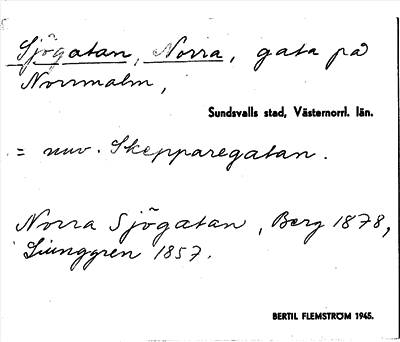 Sjögatan, Norra, gata på
Norrmalm,
Sundsvalls stad, Västernorrl. län.
= nuv. Skepparegatan.
Norra Sjögatan, Berg 1878,
Ljunggren 1857.
BERTIL FLEMSTRÖM 1945.